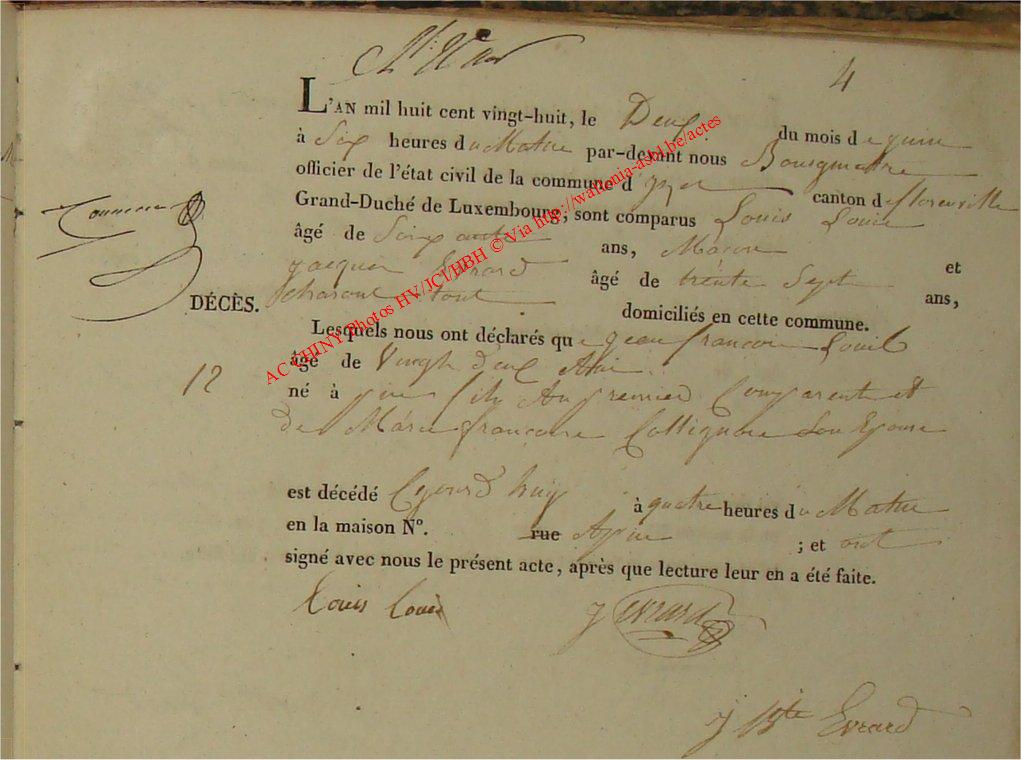 4
L'AN mil huit cent vingt-huit, le Deux du mois de juin
à Six heures du Matin par-devant nous Bourgmestre
officier de l'état civil de la commune d' canton de florenville
Grand-Duché de Luxembourg, sont comparus Louis Louis
âgé de Soixante ans, Maçon et
jacques Evrard âgé de trente Sept ans,
tout domiciliés en cette commune.
DÉCÈS.
Lesquels nous ont déclarés que jean françois Louis
âgé de Vingt deux Ans
12
né à fils du premier Comparent et
de Marie françoise Collignon Son Epouse
est décédé Cejourd'huy à quatre heures du Matin
en la maison N°. rue ; et ont
signé avec nous le présent acte, après que lecture leur en a été faite.
Louis Louis
J evrard
J Bte Evrard
AC CHINY Photos HV/JCI/HBH © Via http://wallonia-asbl.be/actes